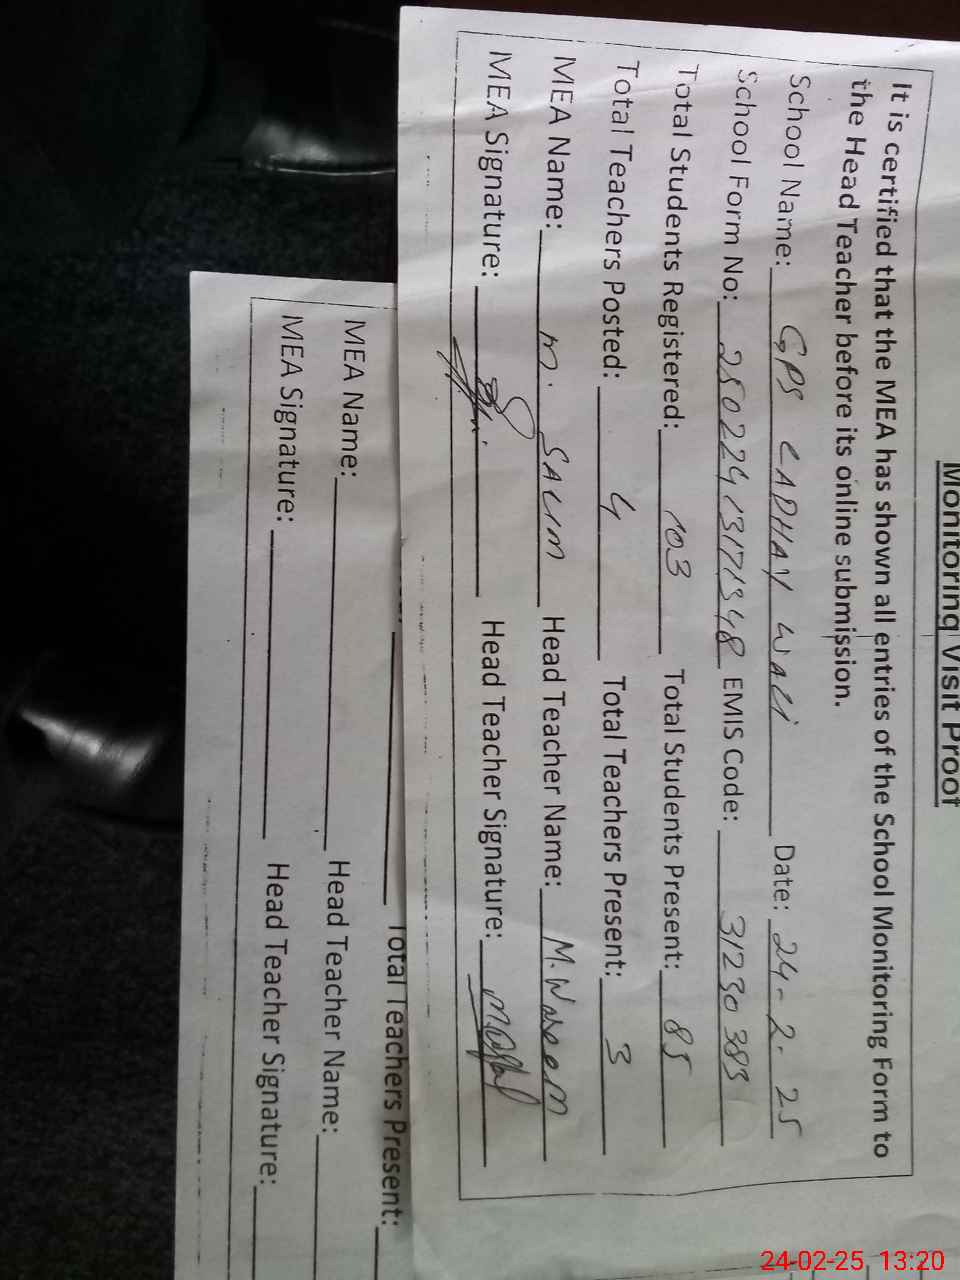 Monitoring Visit Proof
It is certified that the MEA has shown all entries of the School Monitoring Form to
the Head Teacher before its online submission.
School Name: GPS LADHAY WALI Date: 24-2-25
School Form No: EMIS Code: 31230383
Total Students Registered: 103 Total Students Present: 85
Total Teachers Posted: 4 Total Teachers Present: 3
MEA Name: M. SALIM Head Teacher Name: M. Waseem
MEA Signature: Head Teacher Signature:
Total Teachers Present:
MEA Name: Head Teacher Name:
MEA Signature: Head Teacher Signature:
24-02-25 13:20